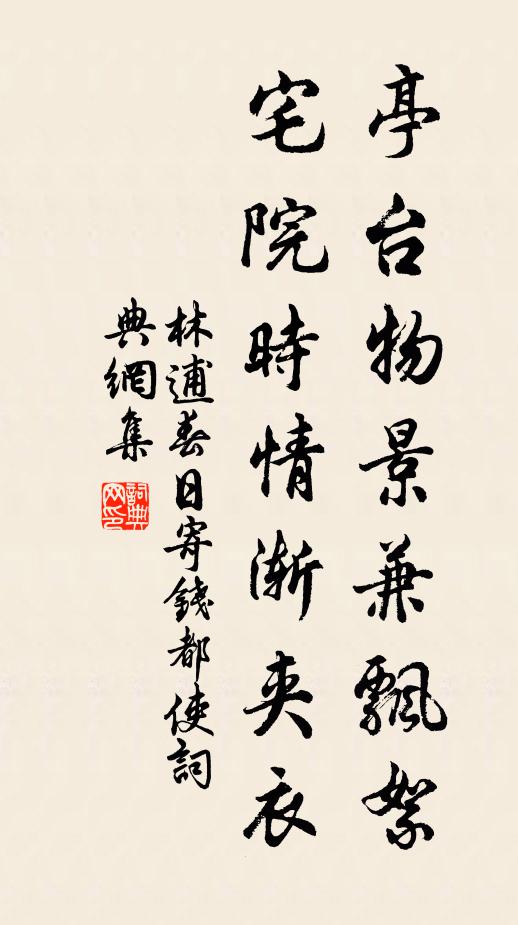 亭台物景兼飄絮
宅院時情漸夾衣
林逋春日寄錢都使詞
典網集
詞典
网印